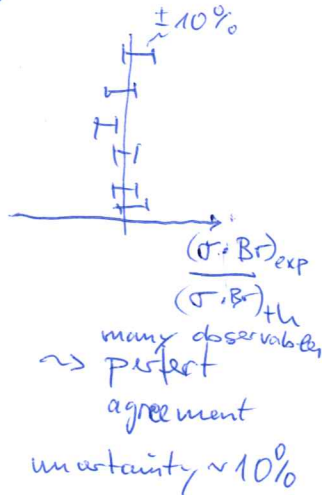 ± ~ 10%
(σ · Br)exp
(σ · Br)th
many observables
~> perfect
agreement
uncertainty ~ 10%